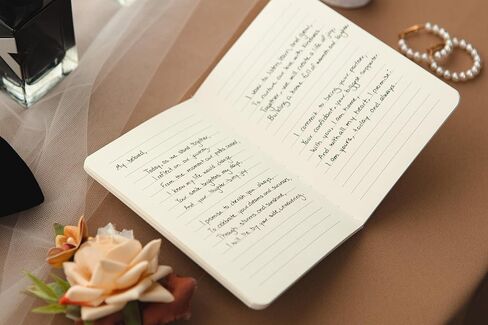 My beloved,
Today as we stand together,
I reflect on our journey.
From the moment our paths crossed
I knew my life would change.
Your smile brightens my days,
And your laughter is my joy.
I promise to cherish you always,
To celebrate your dreams and successes,
Through storms and sunshine,
I will be by your side, unwavering.
I vow to listen, learn, and grow,
To nurture our love with kindness.
Together, we will create a life of joy,
Building a home full of warmth and laughter.
I commit to being your partner,
Your confidant, your biggest supporter.
With you, I am home,
And with all my heart, I promise:
I am yours, today and always.